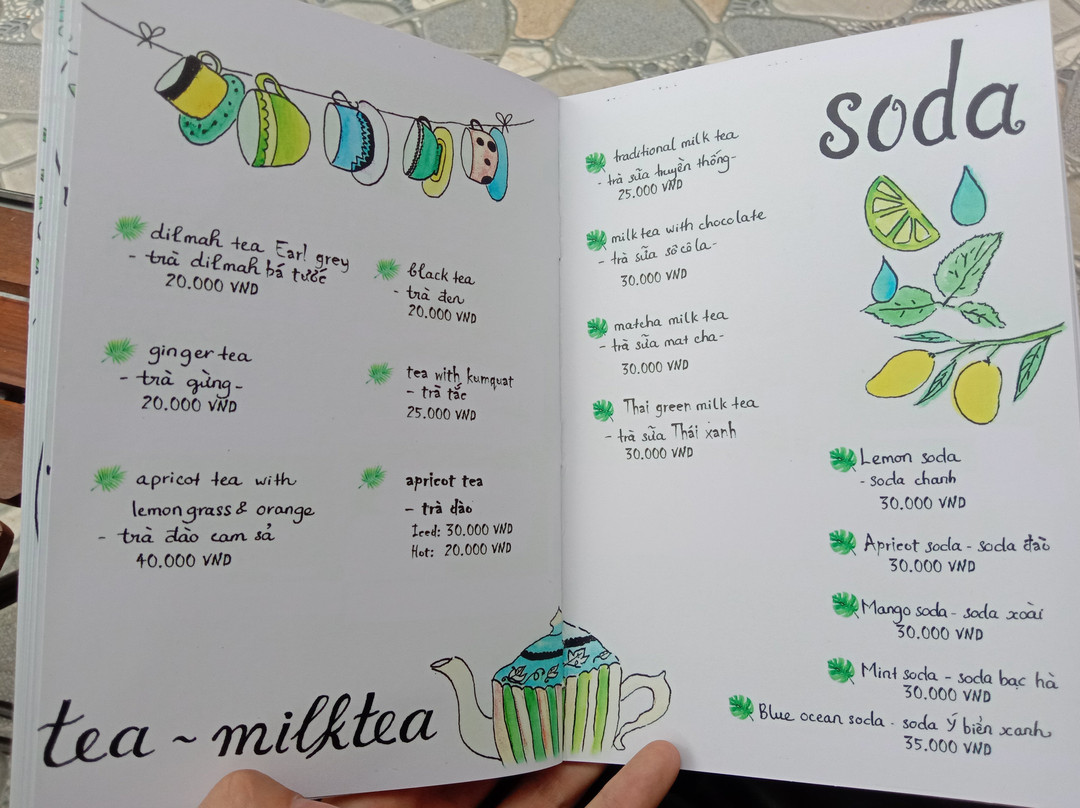 dilmah tea Earl grey
- trà dilmah bá tước
20.000 VND
ginger tea
- trà gừng -
20.000 VND
apricot tea with
lemongrass & orange
- trà đào cam sả
40.000 VND
black tea
- trà đen
20.000 VND
tea with kumquat
- trà tắc
25.000 VND
apricot tea
- trà đào
Iced: 30.000 VND
Hot: 20.000 VND
tea ~ milktea
traditional milk tea
- trà sữa truyền thống -
25.000 VND
milk tea with chocolate
- trà sữa sô cô la -
30.000 VND
matcha milk tea
- trà sữa mat cha -
30.000 VND
Thai green milk tea
- trà sữa Thái xanh
30.000 VND
soda
Lemon soda
- soda chanh
30.000 VND
Apricot soda - soda đào
30.000 VND
Mango soda - soda xoài
30.000 VND
Mint soda - soda bạc hà
30.000 VND
Blue ocean soda - soda Ý biển xanh
35.000 VND